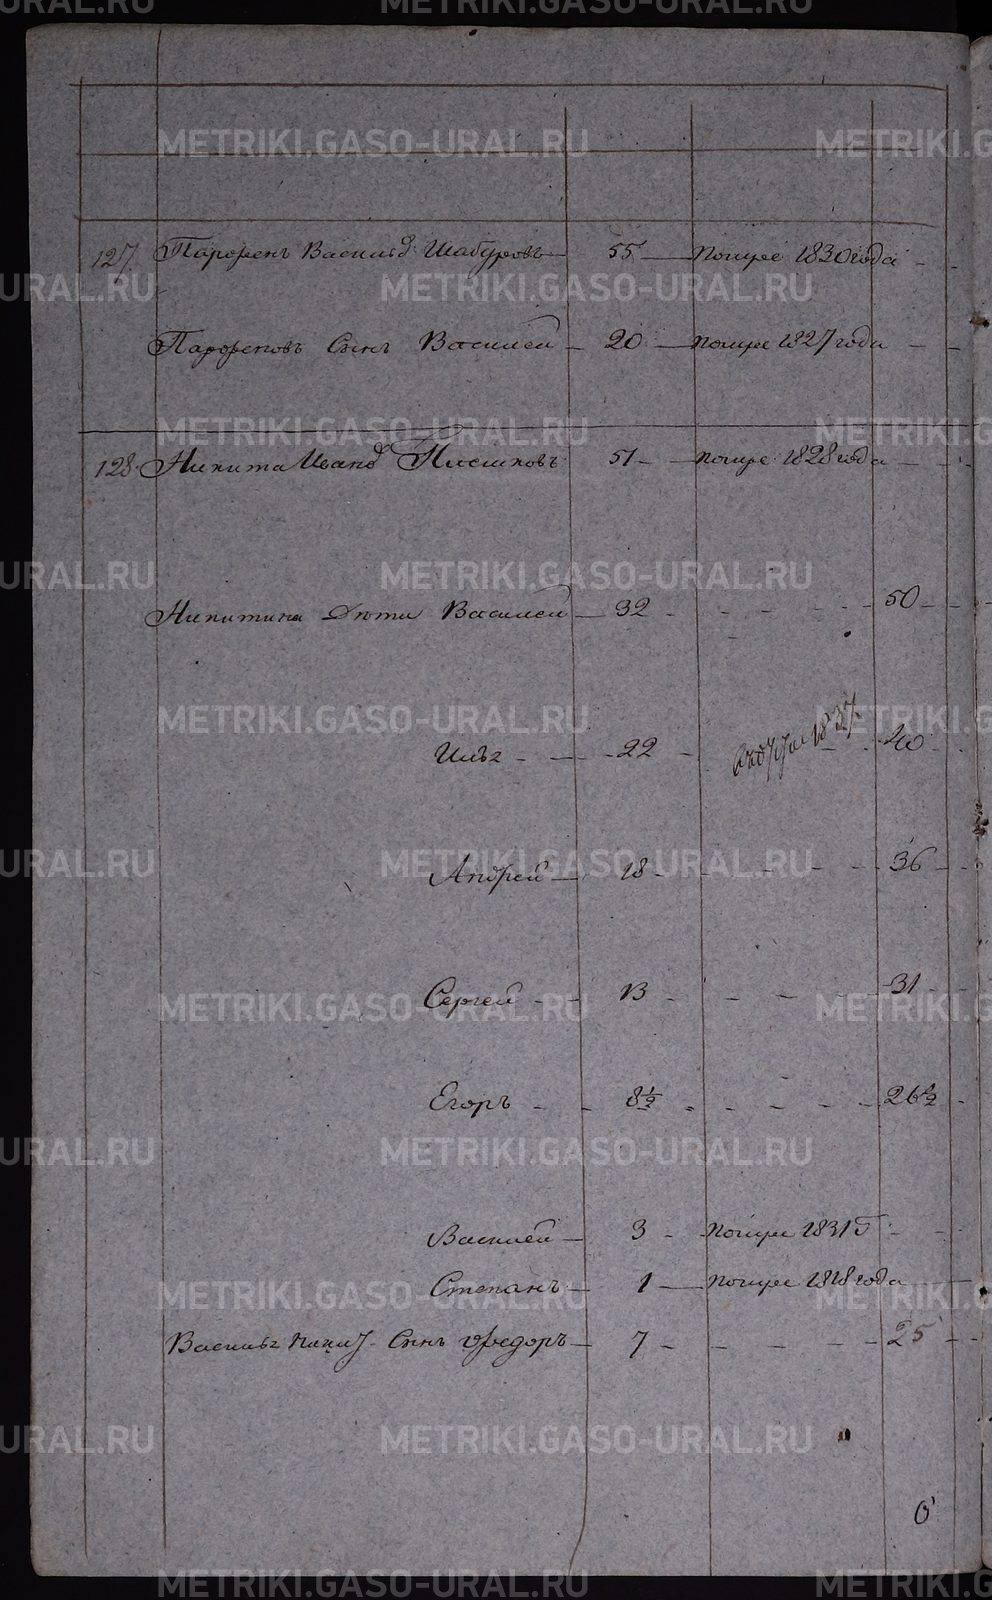 127. Парфенъ Василье: Шабуровъ — 55 — помре 1830 года - -
Парфеновъ Сынъ Василей — 20 — помре 1827 года - -
128. Никита Иванъ 51 — помре 1828 года - -
Никитина Дѣти Василей — 32 - - - - 50 -
Илья - - 22 - 1837. - 40 -
Андрей — 18 - - - - 36 -
Сергей - - 13 - - - - 31 -
Егоръ - - 8½ - - - - 26½ -
Василей — 3 - помре 1831 г - -
Степанъ — 1 — помре 1818 года - -
Василья Никит. Сынъ Федоръ — 7 - - - - 25 - -
METRIKI.GASO-URAL.RU